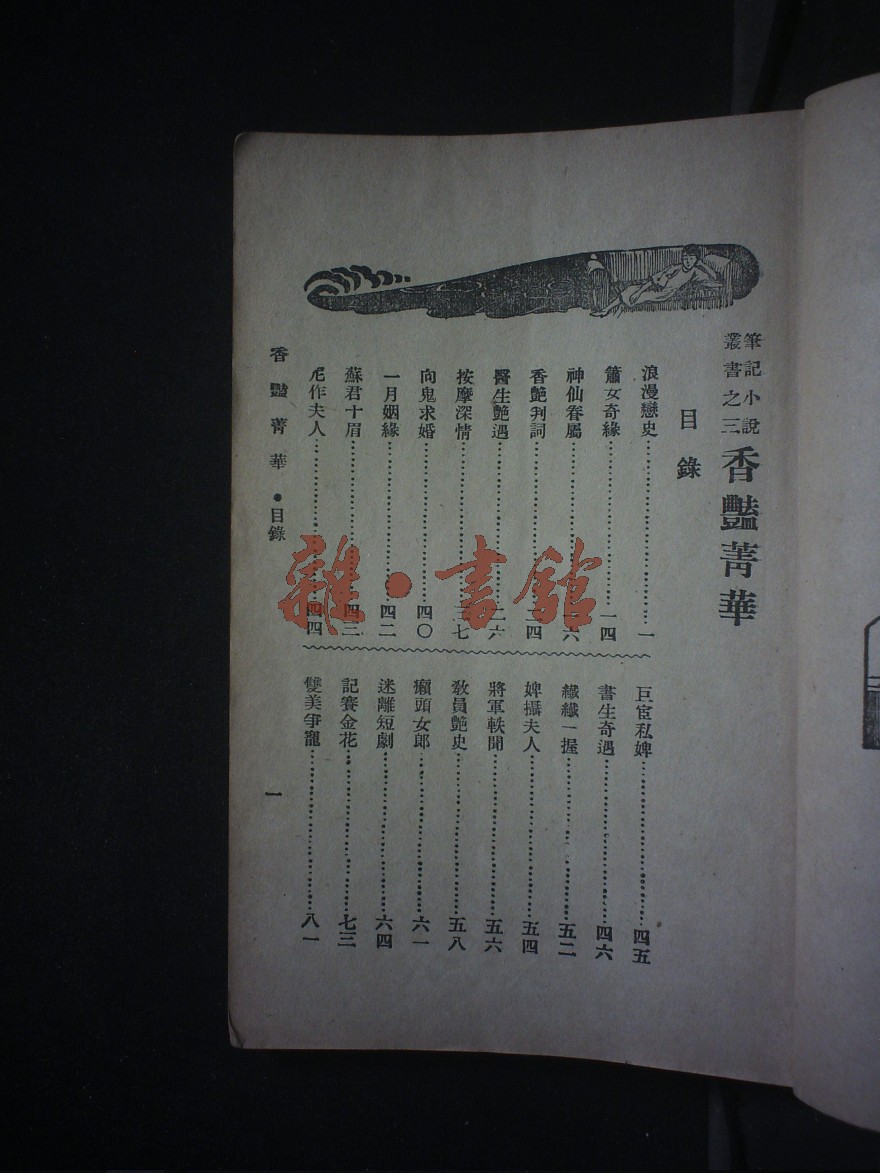 筆記小說
叢書之三
香豔菁華
目錄
浪漫戀史 一
簫女奇緣 一四
神仙眷屬 一六
香艷判詞 二四
醫生艷遇 二六
按摩深情 三七
向鬼求婚 四〇
一月姻緣 四二
蘇君十眉 四三
尼作夫人 四四
巨宦私婢 四五
書生奇遇 四六
纖纖一握 五二
婢攝夫人 五四
將軍軼聞 五六
敎員艷史 五八
癩頭女郎 六一
迷離短劇 六四
記賽金花 七三
雙美爭寵 八一
香豔菁華•目錄
一
雜·書館